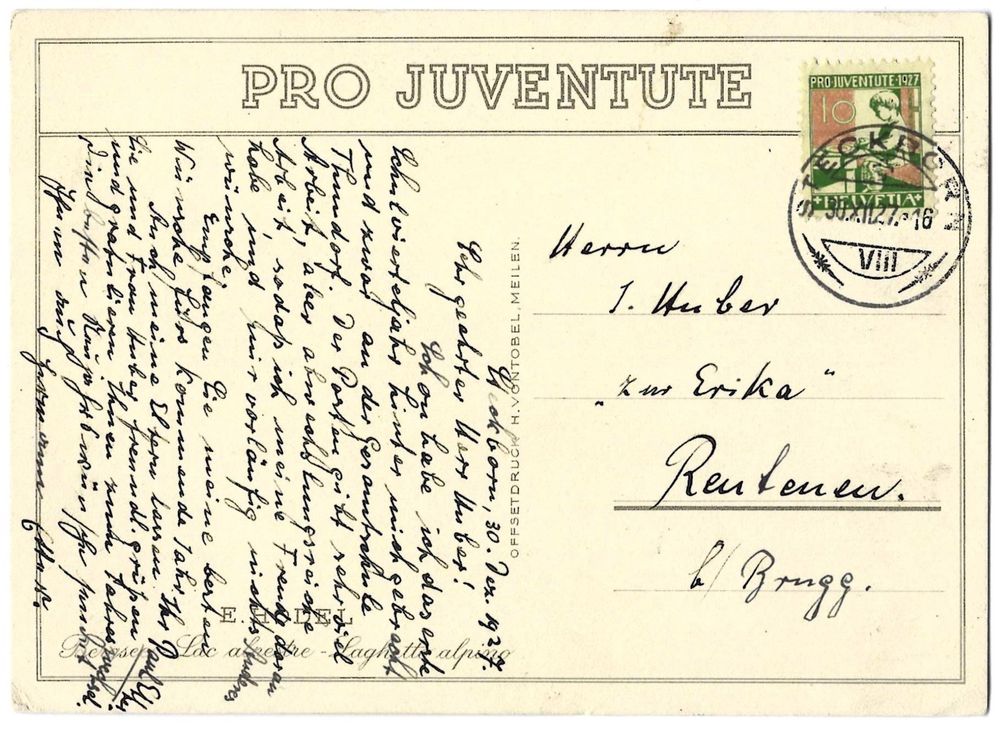 PRO JUVENTUTE
PRO JUVENTUTE • 1927
10
HELVETIA
STECKBORN
30.XII.27.-16
VIII
Herrn
J. Huber
"zur Erika"
Rentenen.
b/ Brugg.
OFFSETDRUCK H. VONTOBEL, MEILEN.
Steckborn, 30. Dez. 1927.
Sehr geehrter Herr Huber!
Schon habe ich das erste
Schulvierteljahr hinter mich gebracht
und zwar an der Gesamtschule
Thundorf. Der Posten gibt sehr viel
Arbeit, aber abwechslungsreiche
Arbeit, sodass ich meine Freude daran
habe und mir vorläufig nichts anderes
wünsche.
Empfangen Sie meine besten
Wünsche fürs kommende Jahr. Ihr
Auch meine Eltern lassen
Sie und Frau Huber freundl. grüßen
und gratulieren Ihnen zum Jahreswechsel.
Ihnen auch
Bergsee - Lac alpestre - Laghetto alpino